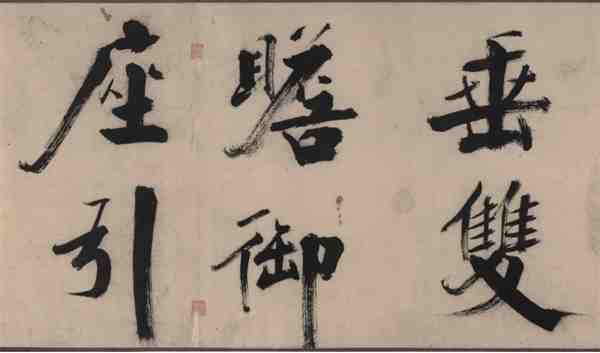 垂雙
瞻御
座引